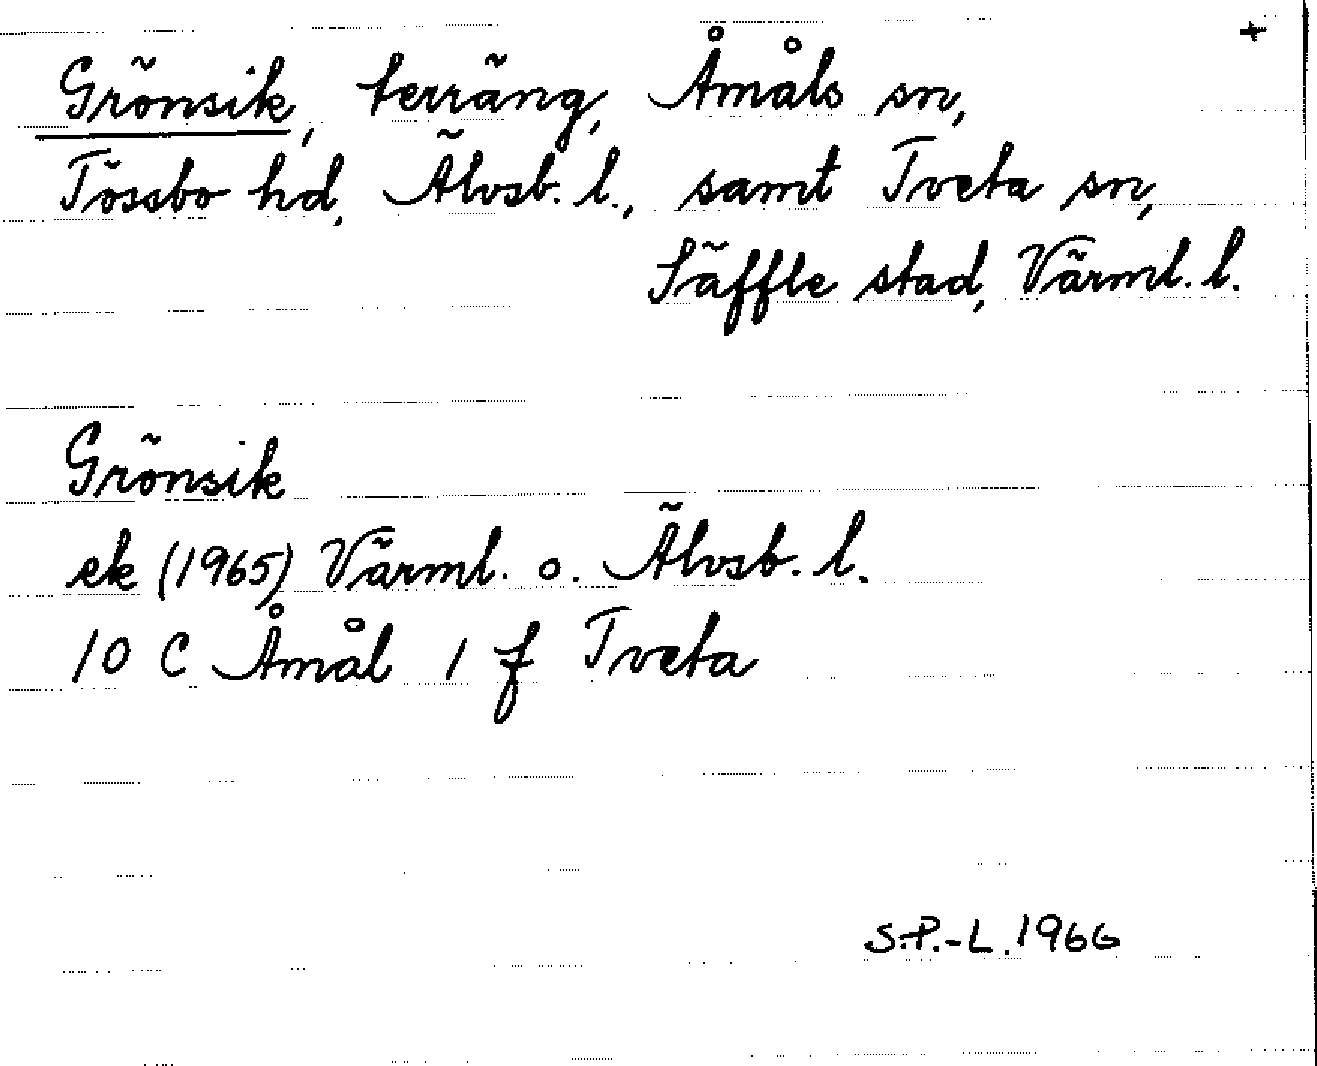 +
Grönsik, terräng, Åmåls sn,
Tössbo hd, Älvsb. l., samt Tveta sn,
Säffle stad, Värml. l.
Grönsik
ek (1965) Värml. o. Älvsb. l.
10 C Åmål 1 f Tveta
S.P.-L. 1966